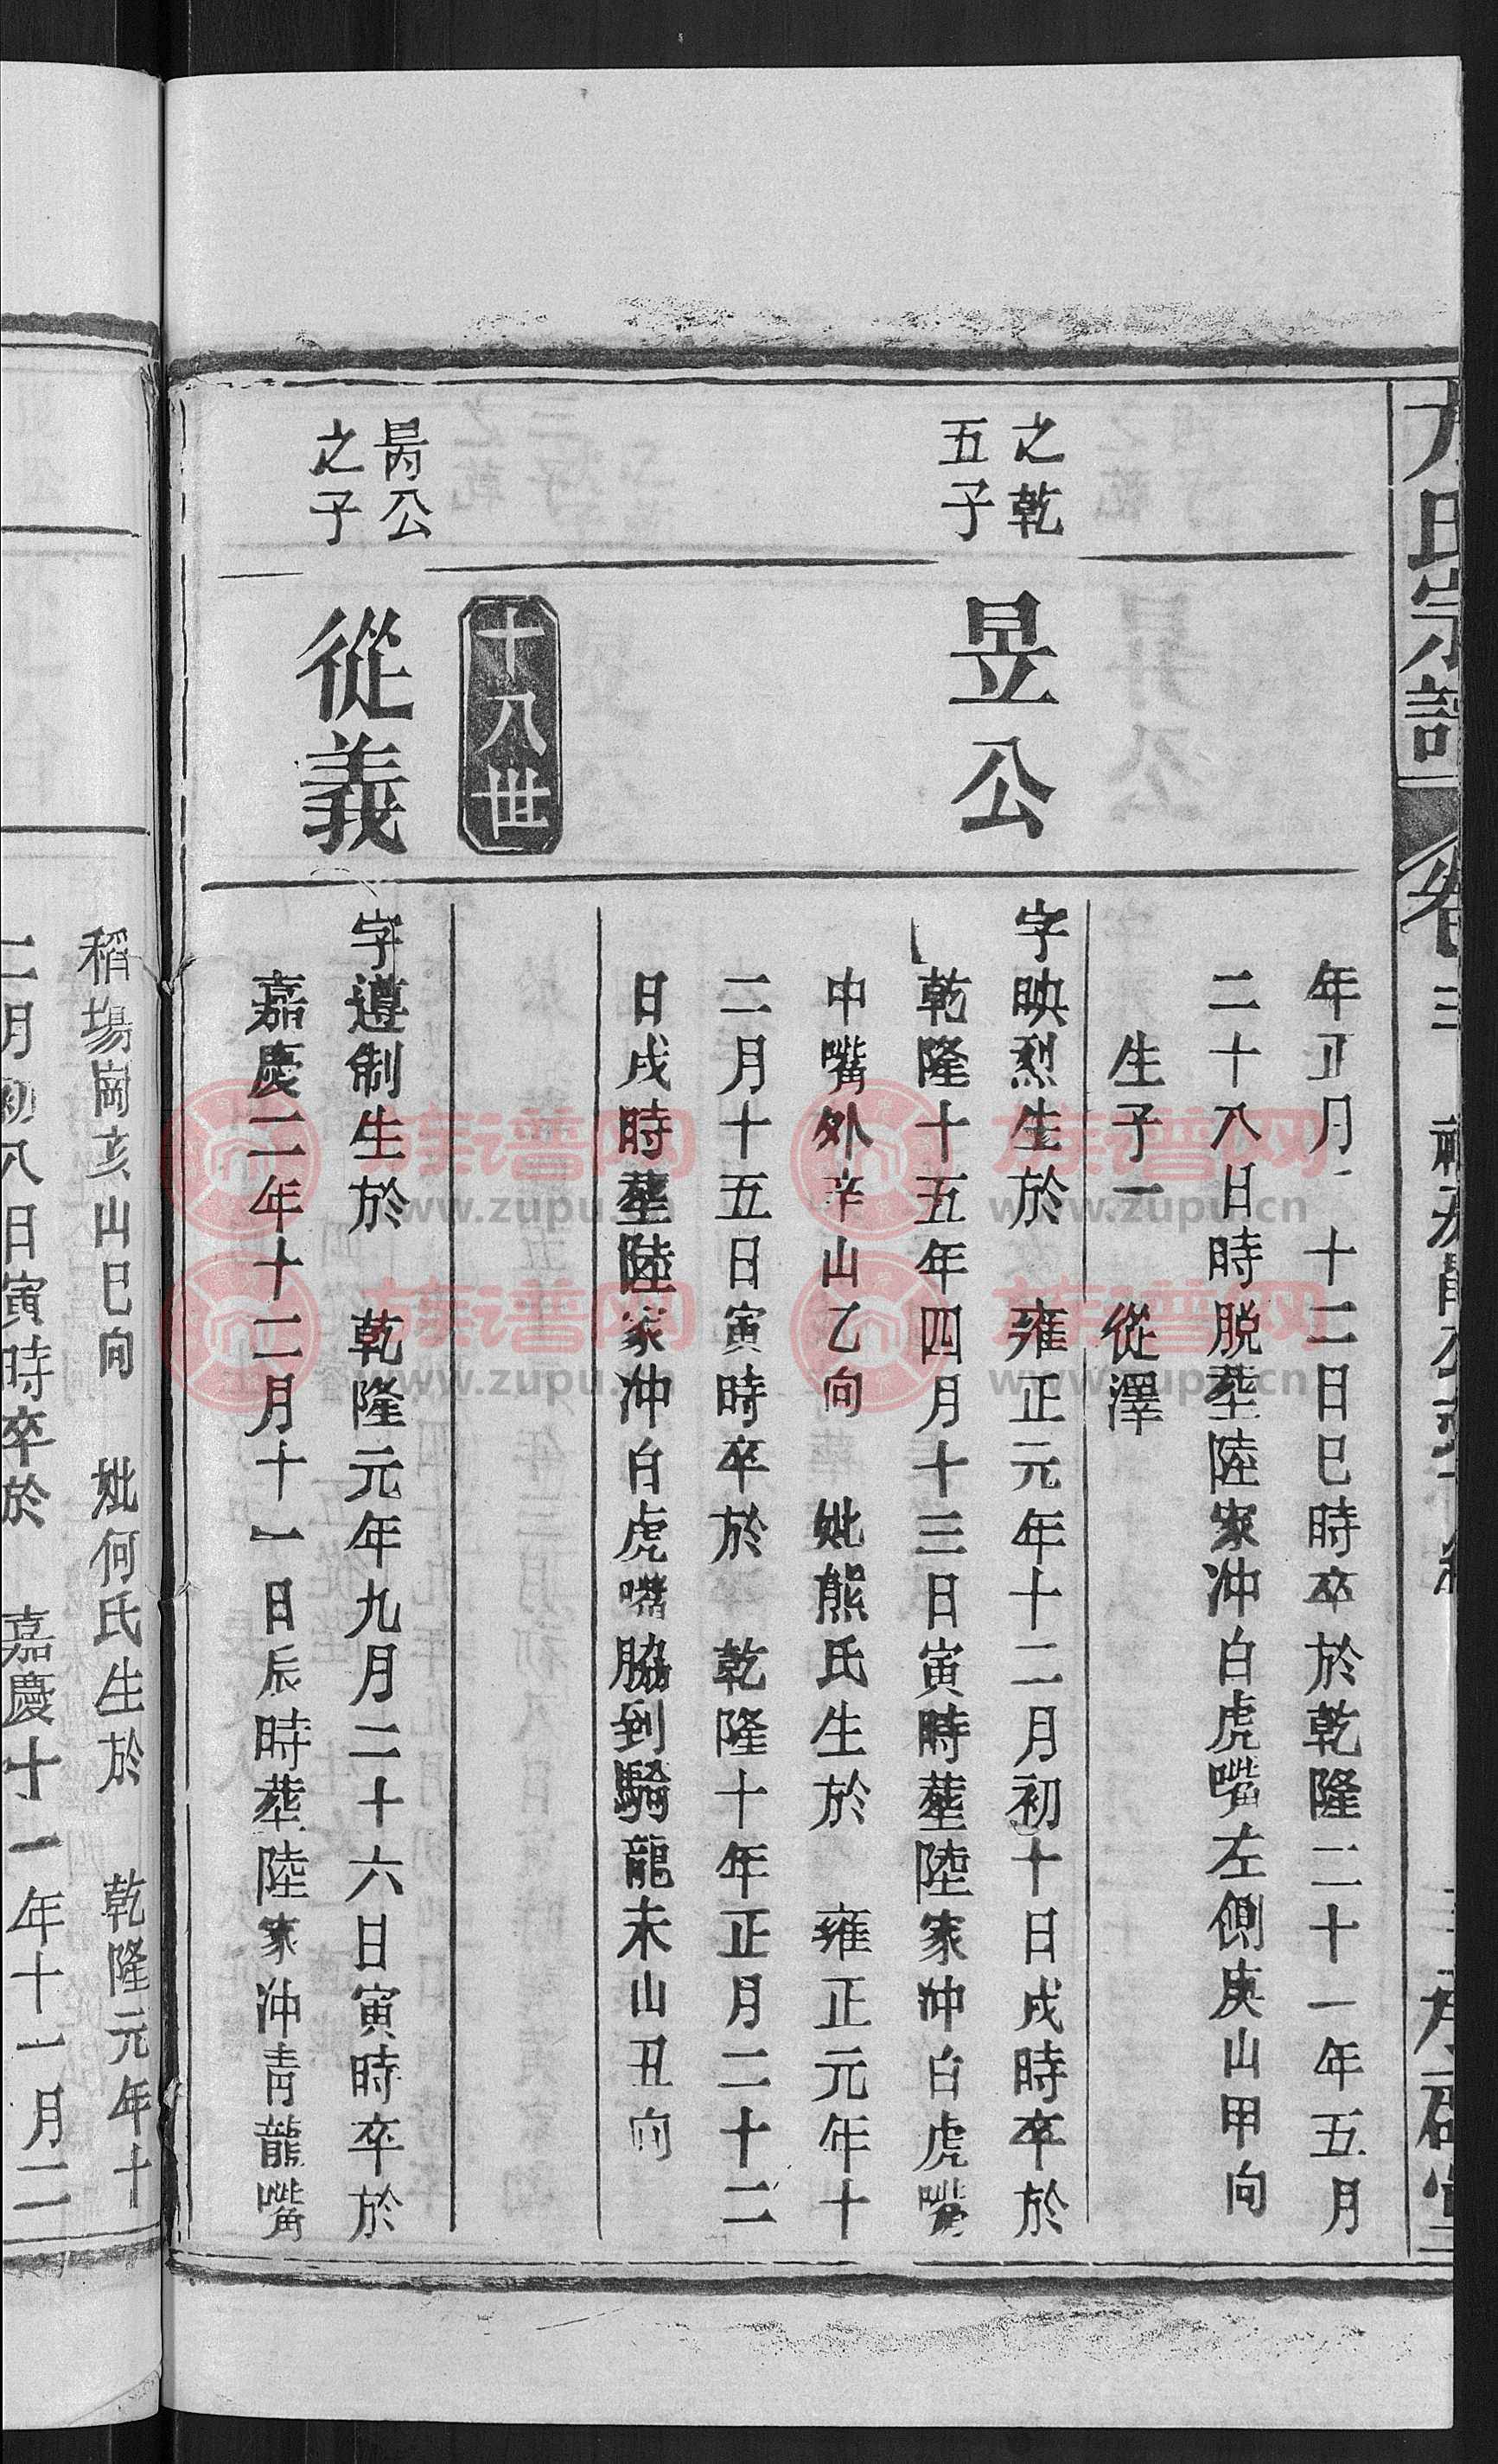 氏宗譜
卷三
年正月 十二日巳時卒於乾隆二十一年五月
二十八日時脫塟陸家冲白虎嘴左側庚山甲向
生子一 從澤
之乾
五子
昱公
字映烈生於 雍正元年十二月初十日戌時卒於
乾隆十五年四月十三日寅時塟陸家冲白虎嘴
中嘴外辛山乙向 妣熊氏生於 雍正元年十
二月十五日寅時卒於 乾隆十年正月二十二
日戌時塟陸家冲白虎嘴脇到騎龍未山丑向
十八世
昺公
之子
從義
字遵制生於 乾隆元年九月二十六日寅時卒於
嘉慶二年十二月十一日辰時塟陸家冲青龍嘴
稻塲崗亥山巳向 妣何氏生於 乾隆元年十
二月初八日寅時卒於 嘉慶十一年十一月二
族谱网
www.zupu.cn
族谱网
www.zupu.cn
族谱网
www.zupu.cn
族谱网
www.zupu.cn